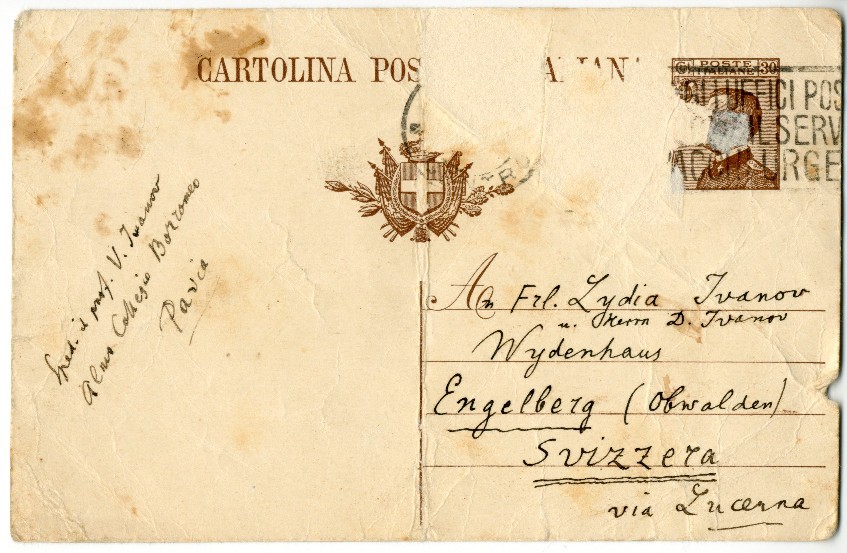 CARTOLINA POS ALIANA
POSTE
ITALIANE 30
UFFICI POS
IL SERV
URGE
Sped. il prof. V. Ivanov
Almo Collegio Borromeo
Pavia
An Frl. Lydia Ivanov
u. Herrn D. Ivanov
Wydenhaus
Engelberg (Obwalden)
Svizzera
via Lucerna